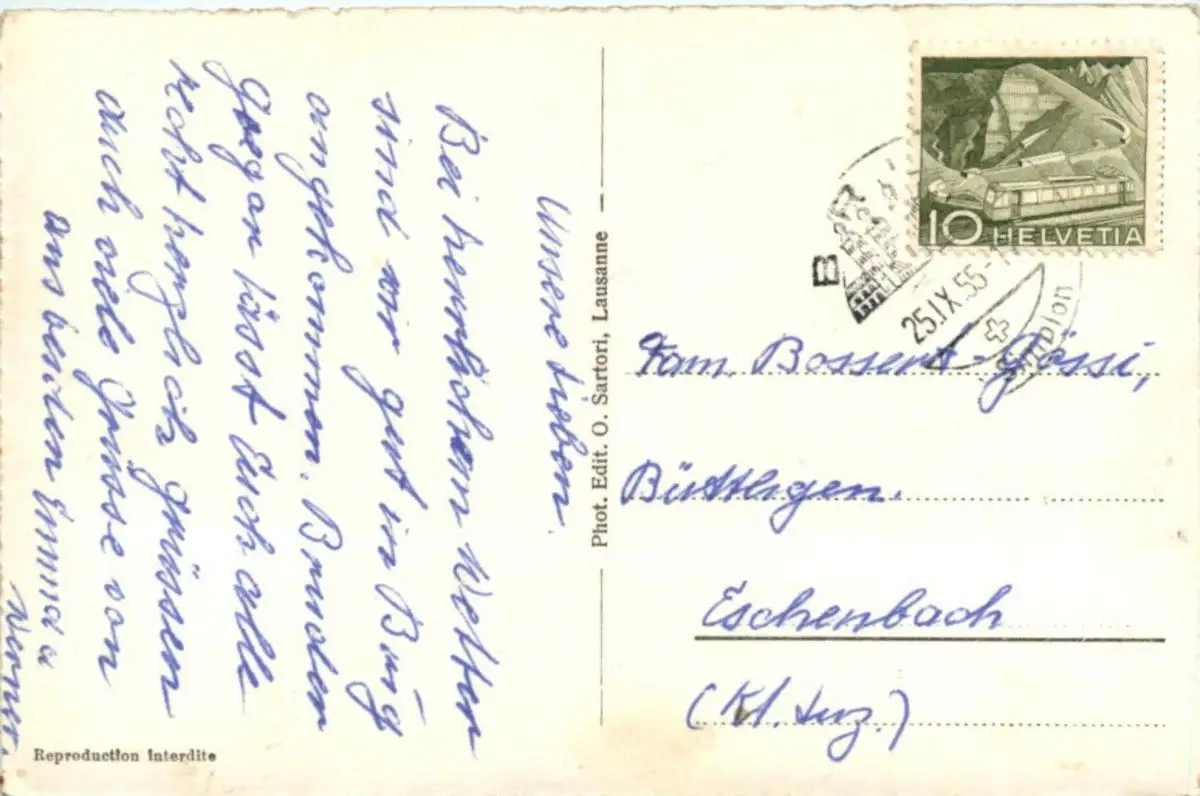 Unsere Lieben.
Bei herrlichem Wetter
sind wir gut in Burg
angekommen. Bruder
Gorgon lässt Euch alle
recht herzlich grüssen
auch viele Grüsse von
uns beiden Emma u
Werner.
Reproduction interdite
Phot. Edit. O. Sartori, Lausanne
10 HELVETIA
25.IX.55-1
Simplon
Fam. Bossert-Gössi,
Büttligen.
Eschenbach
(Kt. Luz.)